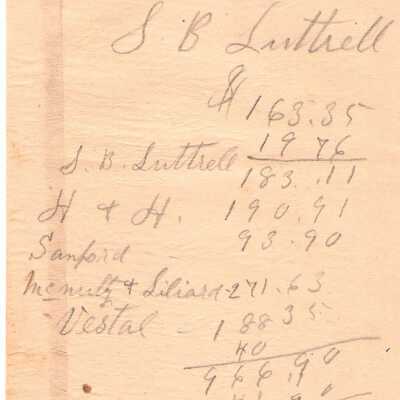 S. B Luttrell
$163.35
19 76
S. B. Luttrell 183.11
H & H. 190.91
Sanford 93.90
McNulty & Liliard - 271.63
Vestal - 188 35
40